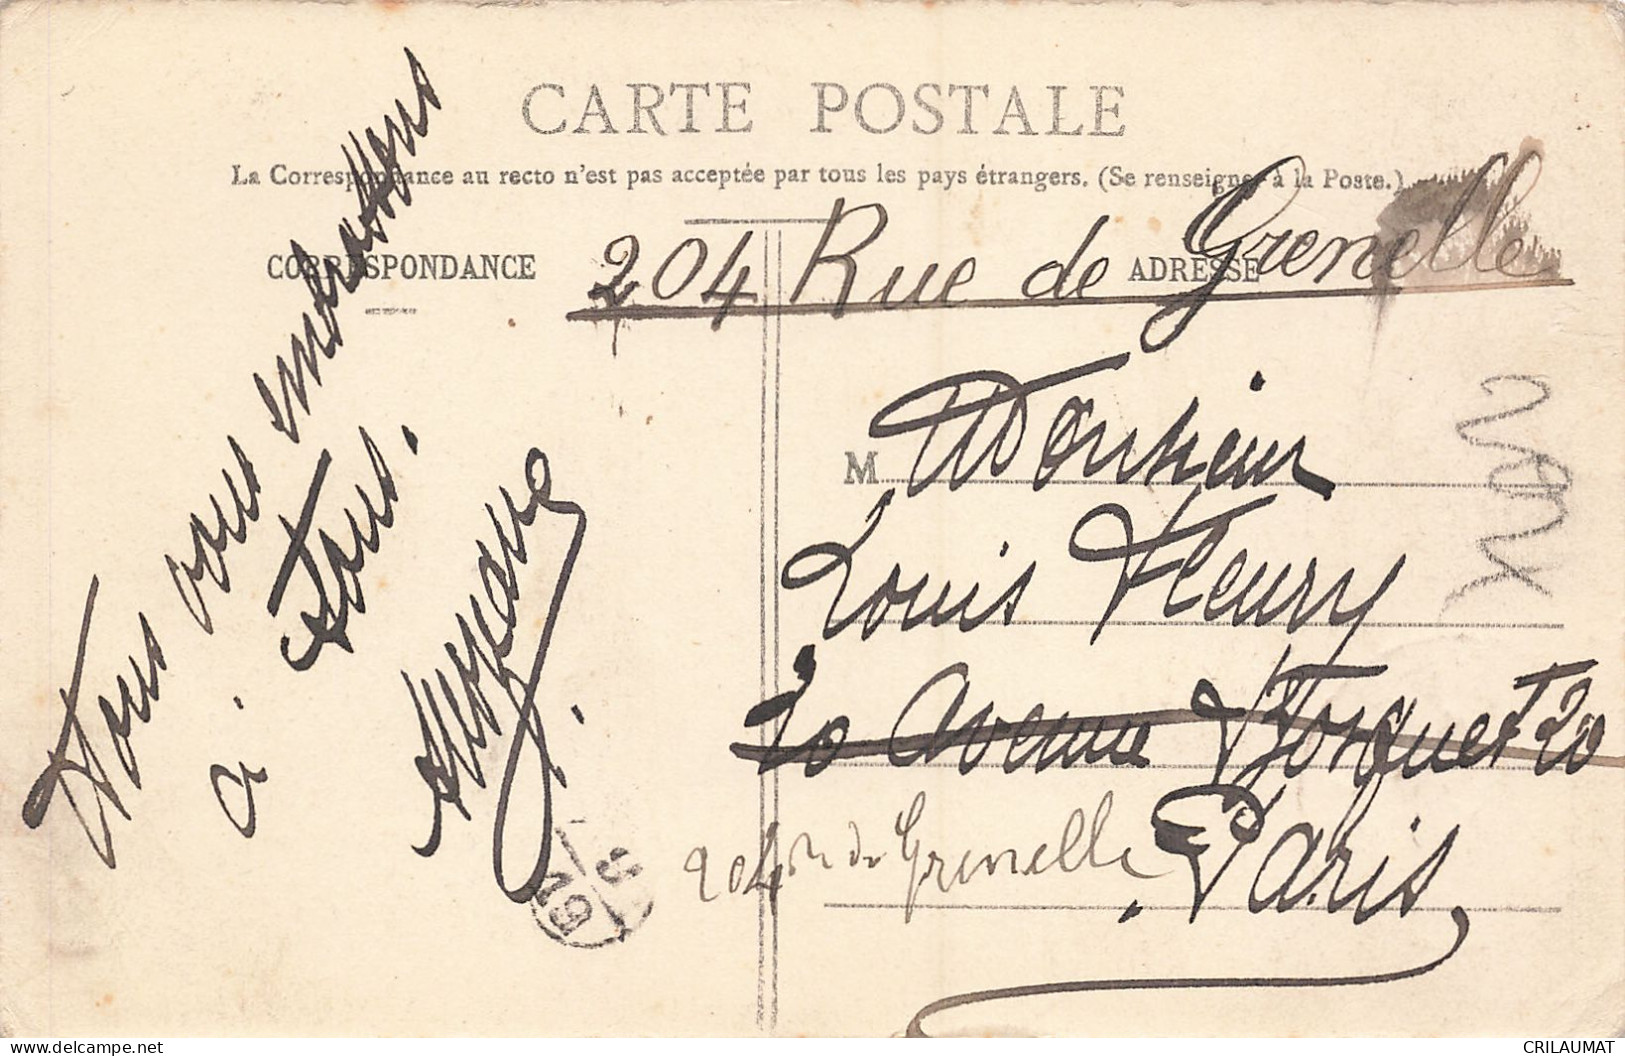 CARTE POSTALE
La Correspondance au recto n'est pas acceptée par tous les pays étrangers. (Se renseigner à la Poste.)
CORRESPONDANCE
ADRESSE
204 Rue de Grenelle
Nous vous embrassons
à Tous.
M
Monsieur
Louis Fleury
20 Avenue Bosquet 20
204 R de Grenelle
Paris
CRILAUMAT